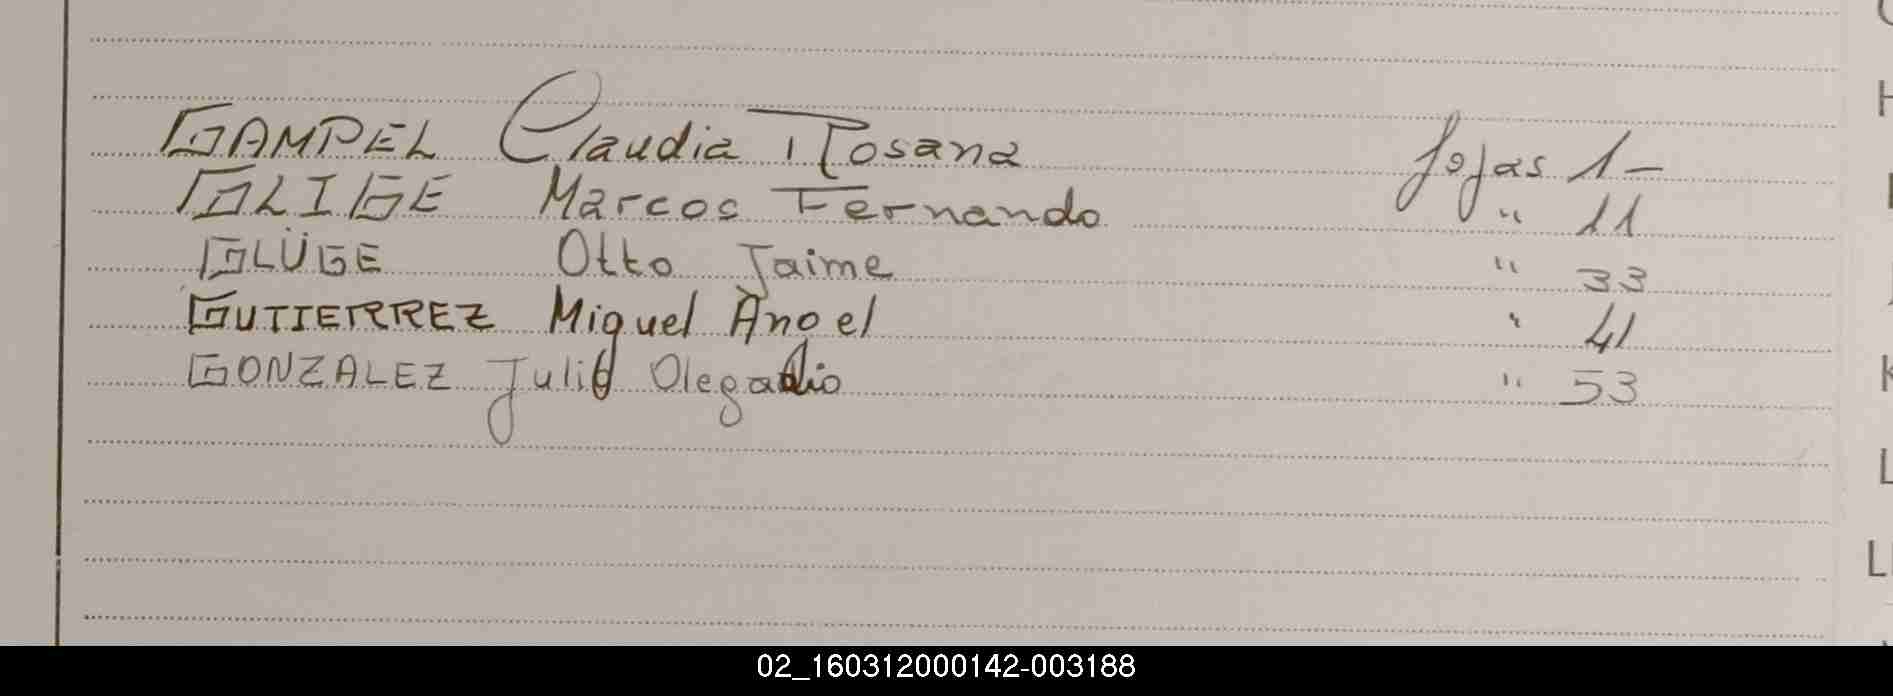 GAMPEL Claudia Rosana fojas 1-
GLIGE Marcos Fernando " 11
GLÜGE Otto Jaime " 33
GUTIERREZ Miguel Angel " 41
GONZALEZ Julio Olegario " 53
02_160312000142-003188